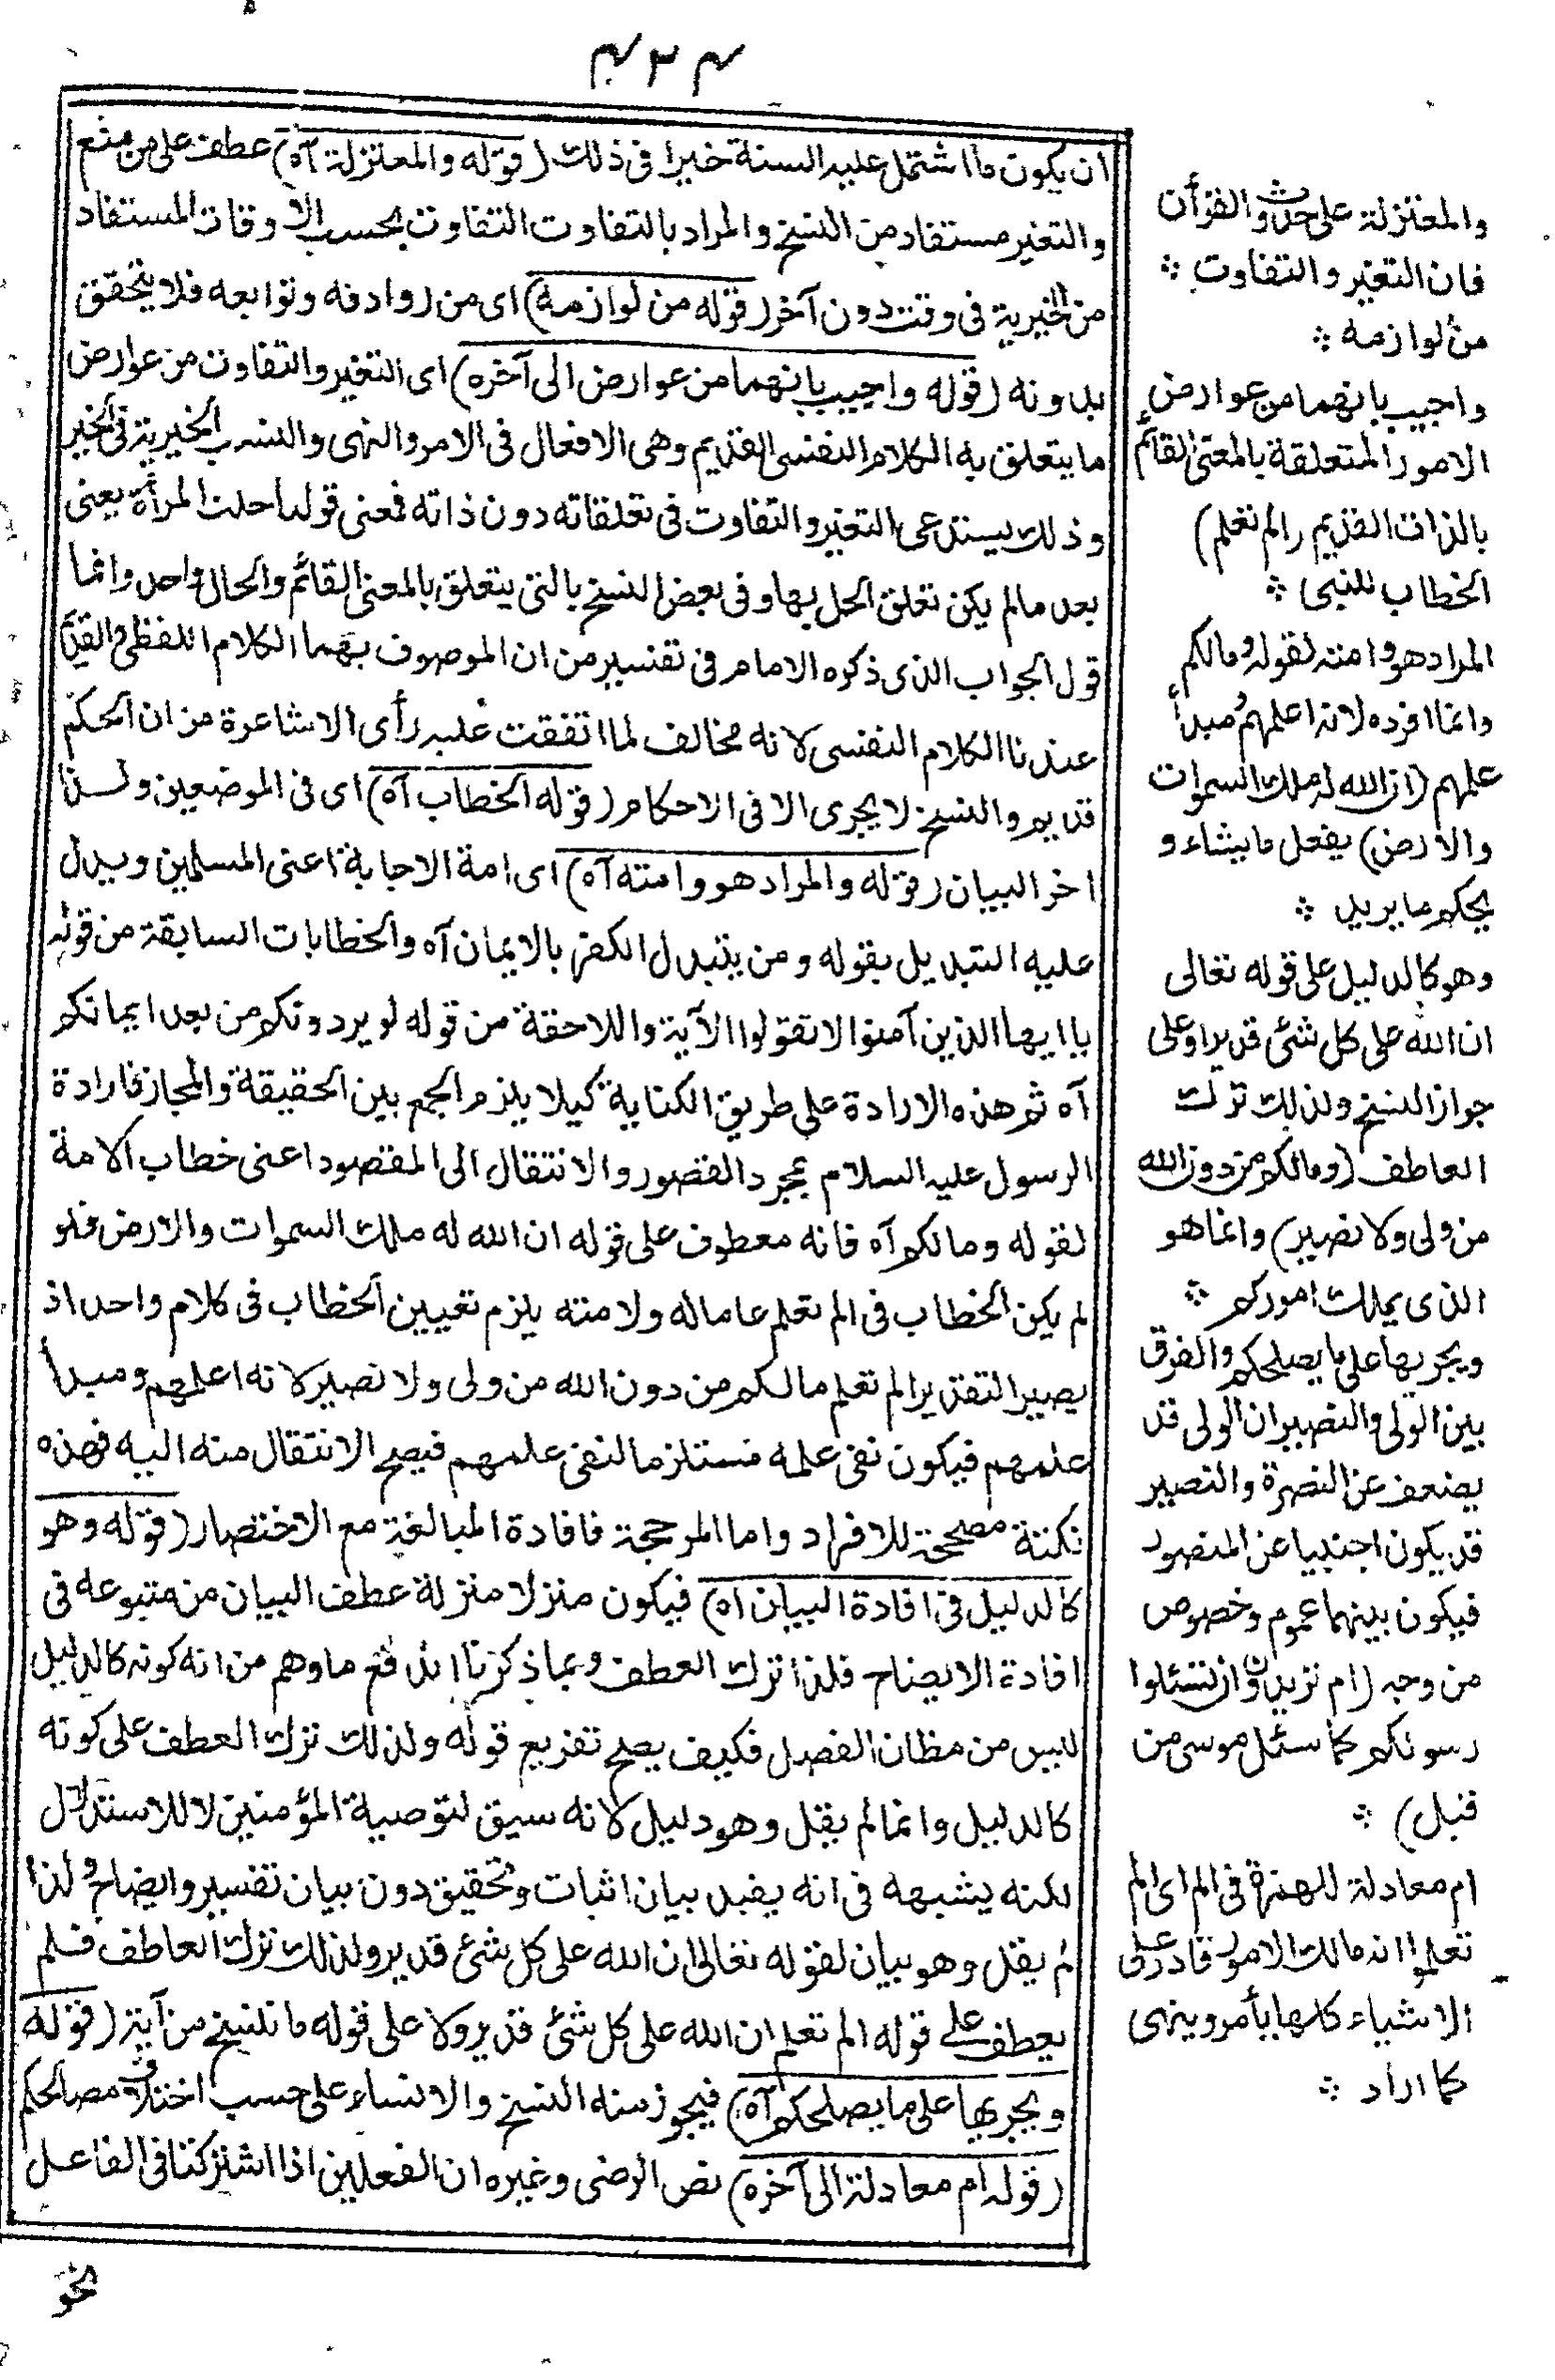 ۴۲۴
ان يكون ما اشتمل عليه السنة خيرا فى ذلك (قوله والمعتزلة آه) عطف على من منع
والتغير مستفاد من النسخ والمراد بالتفاوت التفاوت بحسب الاوقات المستفاد
من الخيرية فى وقت دون آخر (قوله من لوازمه) اى من روادفه وتوابعه فلا يتحقق
بدونه (قوله واجيب بانهما من عوارض الى آخره) اى التغير والتفاوت من عوارض
ما يتعلق به الكلام النفسى القديم وهى الافعال فى الامر والنهى والنسب الخبرية فى الخبر
وذلك يستدعى التغير والتفاوت فى تعلقاته دون ذاته فمعنى قولنا حلت المرأة يعنى
بعد مالم يكن تعلق الحل بها وفى بعض النسخ بالتى يتعلق بالمعنى القائم والحال واحد وانما
قول الجواب الذى ذكره الامام فى تفسيره من ان الموصوف بهما الكلام اللفظى والقديم
عندنا الكلام النفسى لانه مخالف لما اتفقت عليه رأى الاشاعرة من ان الحكم
قديم والنسخ لا يجرى الا فى الاحكام (قوله الخطاب آه) اى فى الموضعين ولذا
اخر البيان (قوله والمراد هو وامته آه) اى امة الاجابة اعنى المسلمين ويدل
عليه التبديل بقوله ومن يتبدل الكفر بالايمان آه والخطابات السابقة من قوله
يا ايها الذين آمنوا لا تقولوا الآية واللاحقة من قوله لو يردونكم من بعد ايمانكم
آه ثم هذه الارادة على طريق الكناية كيلا يلزم الجمع بين الحقيقة والمجاز فارادة
الرسول عليه السلام بمجرد القصور والانتقال الى المقصود اعنى خطاب الامة
لقوله ومالكم آه فانه معطوف على قوله ان الله له ملك السموات والارض فلو
لم يكن الخطاب فى الم تعلم عاما له ولامته يلزم تغيير الخطاب فى كلام واحد اذ
يصير التقدير الم تعلم مالكم من دون الله من ولى ولا نصير لانه اعلمهم ومبدأ
علمهم فيكون نفى علمه مستلزما لنفى علمهم فيصح الانتقال منه اليه فهذه
نكتة مصححة للافراد واما المرجحة فافادة المبالغة مع الاختصار (قوله وهو
كالدليل فى افادة البيان اه) فيكون منزلا منزلة عطف البيان من متبوعه فى
افادة الايضاح فلذا ترك العطف وبما ذكرنا اندفع ما وهم من انه كونه كالدليل
ليس من مظان الفصل فكيف يصح تفريع قوله ولذلك ترك العطف على كونه
كالدليل وانما لم يقل وهو دليل لانه سيق لتوصية المؤمنين لا للاستدلال
لكنه يشبهه فى انه يفيد بيان اثبات وتحقيق دون بيان تفسير وايضاح ولذا
لم يقل وهو بيان لقوله تعالى ان الله على كل شئ قدير ولذلك ترك العاطف فلم
يعطف على قوله الم تعلم ان الله على كل شئ قدير ولا على قوله ما ننسخ من آية (قوله
ويجريها على ما يصلحكم آه) فيجوز منه النسخ والانساء على حسب اختلاف مصالحكم
(قوله ام معادلة الى آخره) نص الرضى وغيره ان الفعلين اذا اشتركتا فى الفاعل
نحو
والمعتزلة على حدوث القرآن
فان التغير والتفاوت ؞
من لوازمه ؞
واجيب بانهما من عوارض
الامور المتعلقة بالمعنى القائم
بالذات القديم (الم تعلم)
الخطاب للنبى ؞
المراد هو وامته لقوله ومالكم
وانما افرده لانه اعلمهم ومبدأ
علمهم (ان الله له ملك السموات
والارض) يفعل ما يشاء و
يحكم ما يريد ؞
وهو كالدليل على قوله تعالى
ان الله على كل شئ قدير او على
جواز النسخ ولذلك ترك
العاطف (ومالكم من دون الله
من ولى ولا نصير) وانما هو
الذى يملك اموركم ؞
ويجريها على ما يصلحكم والفرق
بين الولى والنصير ان الولى قد
يضعف عن النصرة والنصير
قد يكون اجنبيا عن المنصور
فيكون بينهما عموم وخصوص
من وجه (ام تريدون ان تسئلوا
رسولكم كما سئل موسى من
قبل) ؞
ام معادلة للهمزة فى الم اى الم
تعلموا انه مالك الامور قادر على
الاشياء كلها يأمر وينهى
كما اراد ؞